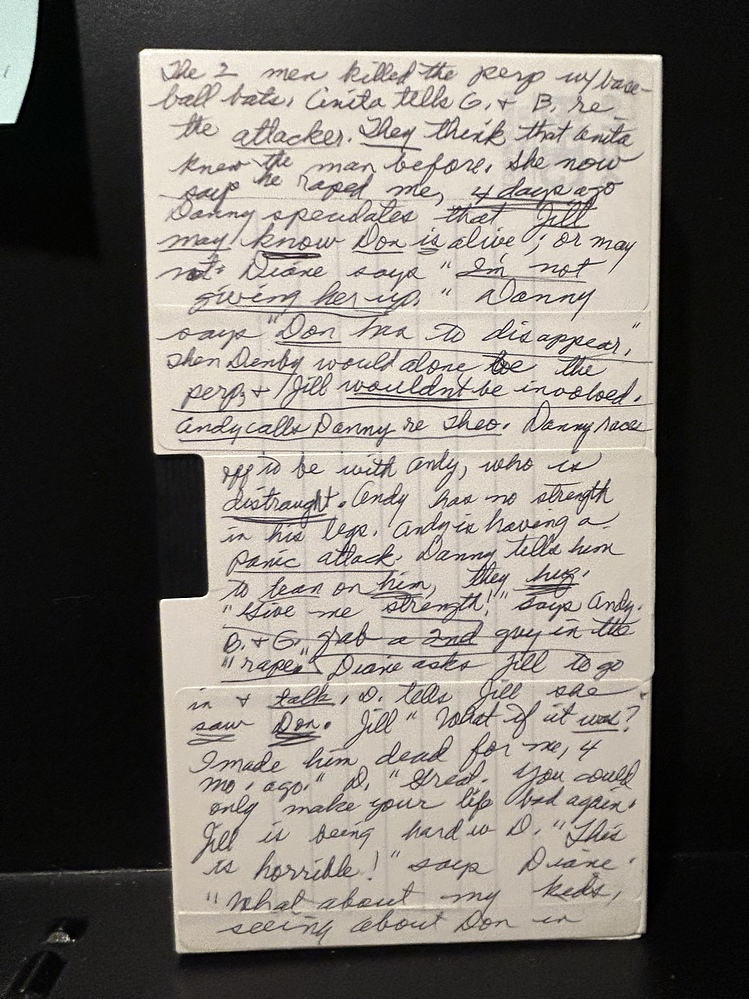 The 2 men killed the perp w/ base-
ball bats. Anita tells G. & B. re
the attacker. They think that Anita
knew the man before. She now
says he raped me, 4 days ago
Danny speculates that Jill
may know Don is alive; or may
not. Diane says "I'm not
giving her up." Danny
says "Don has to disappear,"
then Denby would alone be the
perp, & Jill wouldn't be involved.
Andy calls Danny re Theo. Danny races
off to be with Andy, who is
distraught. Andy has no strength
in his legs. Andy is having a
panic attack. Danny tells him
to lean on him, they hug.
"Give me strength!" says Andy.
B. & G. grab a 2nd guy in the
"rape" Diane asks Jill to go
in & talk. D. tells Jill she
saw Don. Jill "What if it was?
I made him dead for me, 4
mo. ago." D. "Great. You could
only make your life bad again.
Jill is being hard w D. "This
is horrible!" says Diane.
"What about my kids,
seeing about Don in